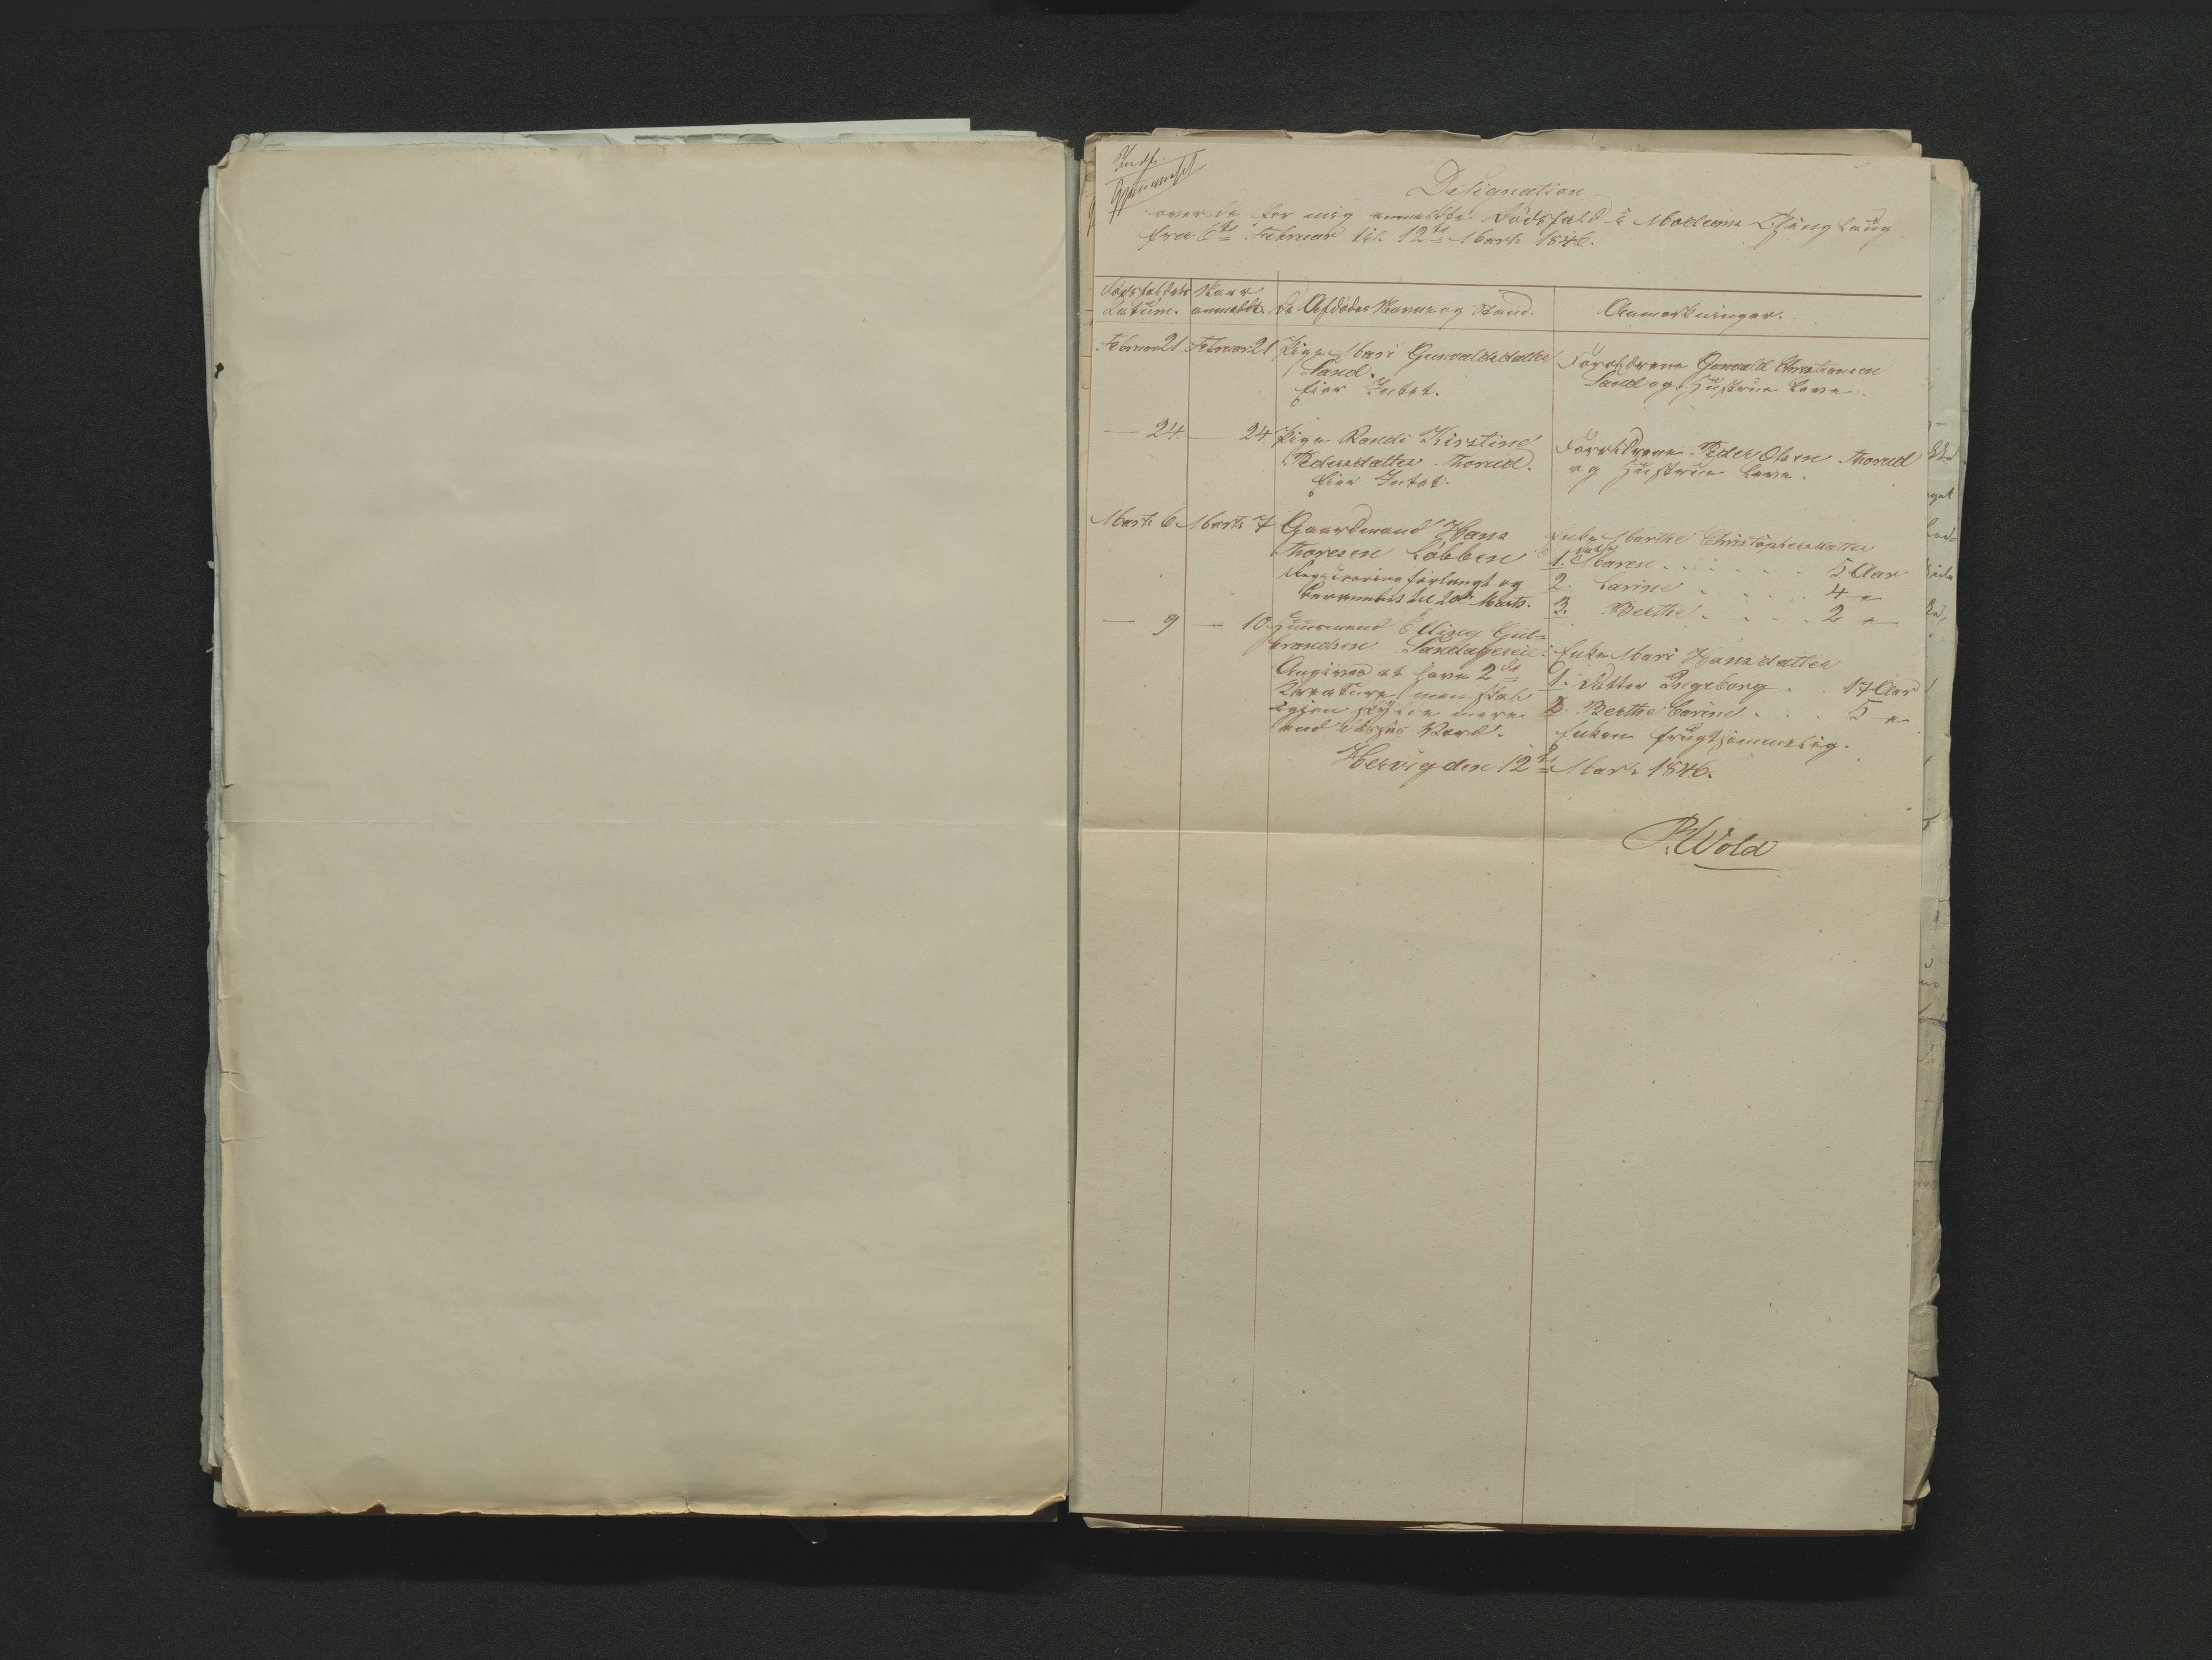 Designation
over de for mig anmeldte Dødsfald i Modums Thinglaug
fra 6te Februar til 12te Marts 1846.
Dødsfaldets Datum.
Naar anmeldt.
De Afdødes Navne og Stand.
Anmærkninger.
Februar 21 Februar 21 Pige Mari Gunvaldsdatter
Sand.
Eier Intet.
Forældrene Gunvald Christiansen
Sand og Hustrue leve.
— 24. — 24 Pige Randi Kirstine
Pedersdatter Thorud.
Eier Intet.
Forældrene Peder Olsen Thorud
og Hustrue leve.
Marts 6 Marts 7 Gaardmand Hans
Thoresen Løbben
Registrering forlangt og
berammet til 20de Marts.
Enke Marthe Christophersdatter
1. Datter Maren . . . . . 5 Aar
2. Karine . . . . 4 "
3. Berthe . . . . . 2 "
— 9 — 10. Huusmand Elling Gul=
brandsen Sandageie.
Angives at have 2de
Kreature, men skal
igjen skylde mere
end disses Værd.
Enke Mari Hansdatter
1. Datter Ingeborg . . 17 Aar
2. Berthe Karine . . . 5 "
Enken frugtsommelig.
Hervig den 12te Marts 1846.
P. Wold